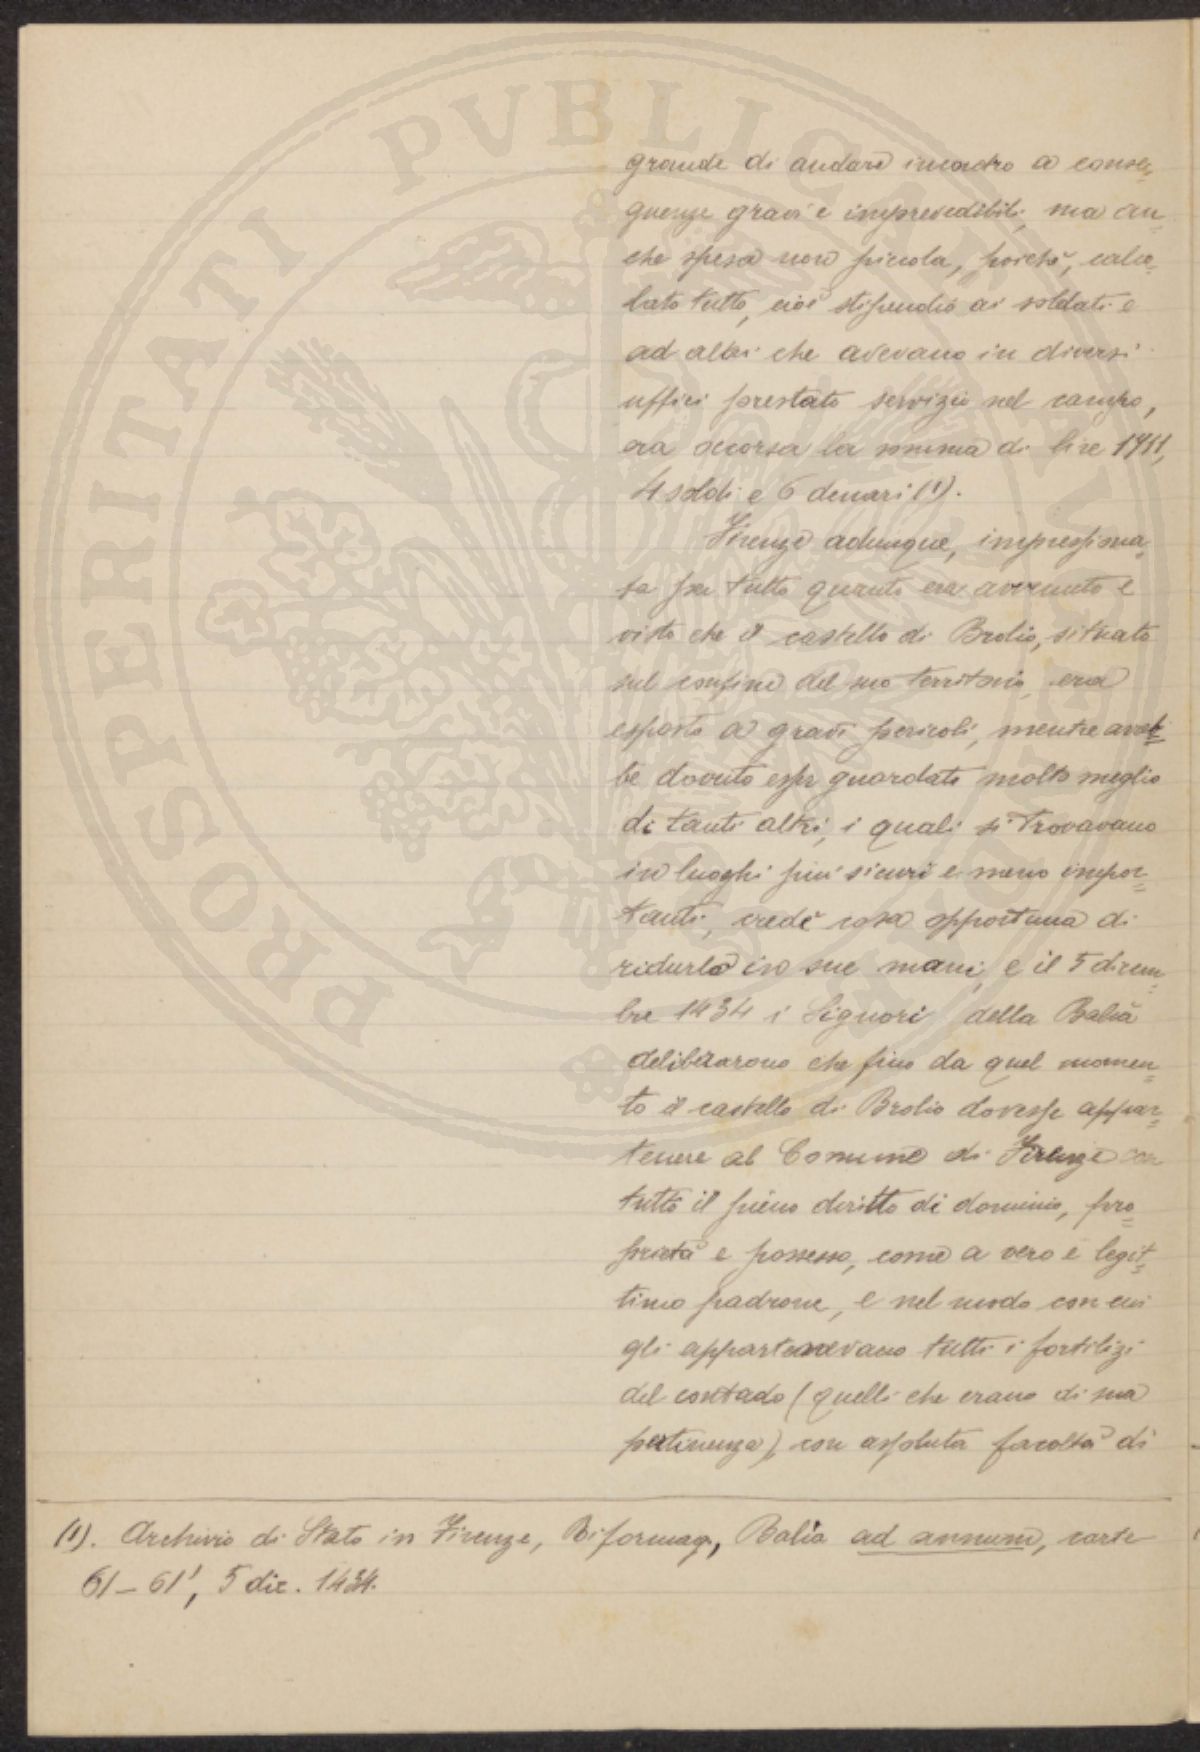 PROSPERITATI PVBLICAE
grande di andare incontro a conse=
guenze gravi e imprevedibili, ma an=
che spesa non piccola, poichè, calco=
lato tutto, cioè stipendio ai soldati e
ad altri che avevano in diversi
uffici prestato servizio nel campo,
era occorsa la somma di lire 1711,
4 soldi e 6 denari (1).
Firenze adunque, impressiona=
ta per tutto quanto era avvenuto e
visto che il castello di Brolio, situato
sul confine del suo territorio, era
esposto a gravi pericoli, mentre avreb=
be dovuto esser guardato molto meglio
di tanti altri, i quali si trovavano
in luoghi più sicuri e meno impor=
tanti, credè cosa opportuna di
ridurlo in sue mani, e il 5 dicem=
bre 1434 i Signori della Balìa
deliberarono che fino da quel momen=
to il castello di Brolio dovesse appar=
tenere al Comune di Firenze con
tutto il pieno diritto di dominio, pro=
prietà e possesso, come a vero e legit=
timo padrone, e nel modo con cui
gli appartenevano tutti i fortilizi
del contado (quelli che erano di sua
pertinenza), con assoluta facoltà di
(1). Archivio di Stato in Firenze, Riformag., Balìa ad annum, carte
61-61', 5 dic. 1434.